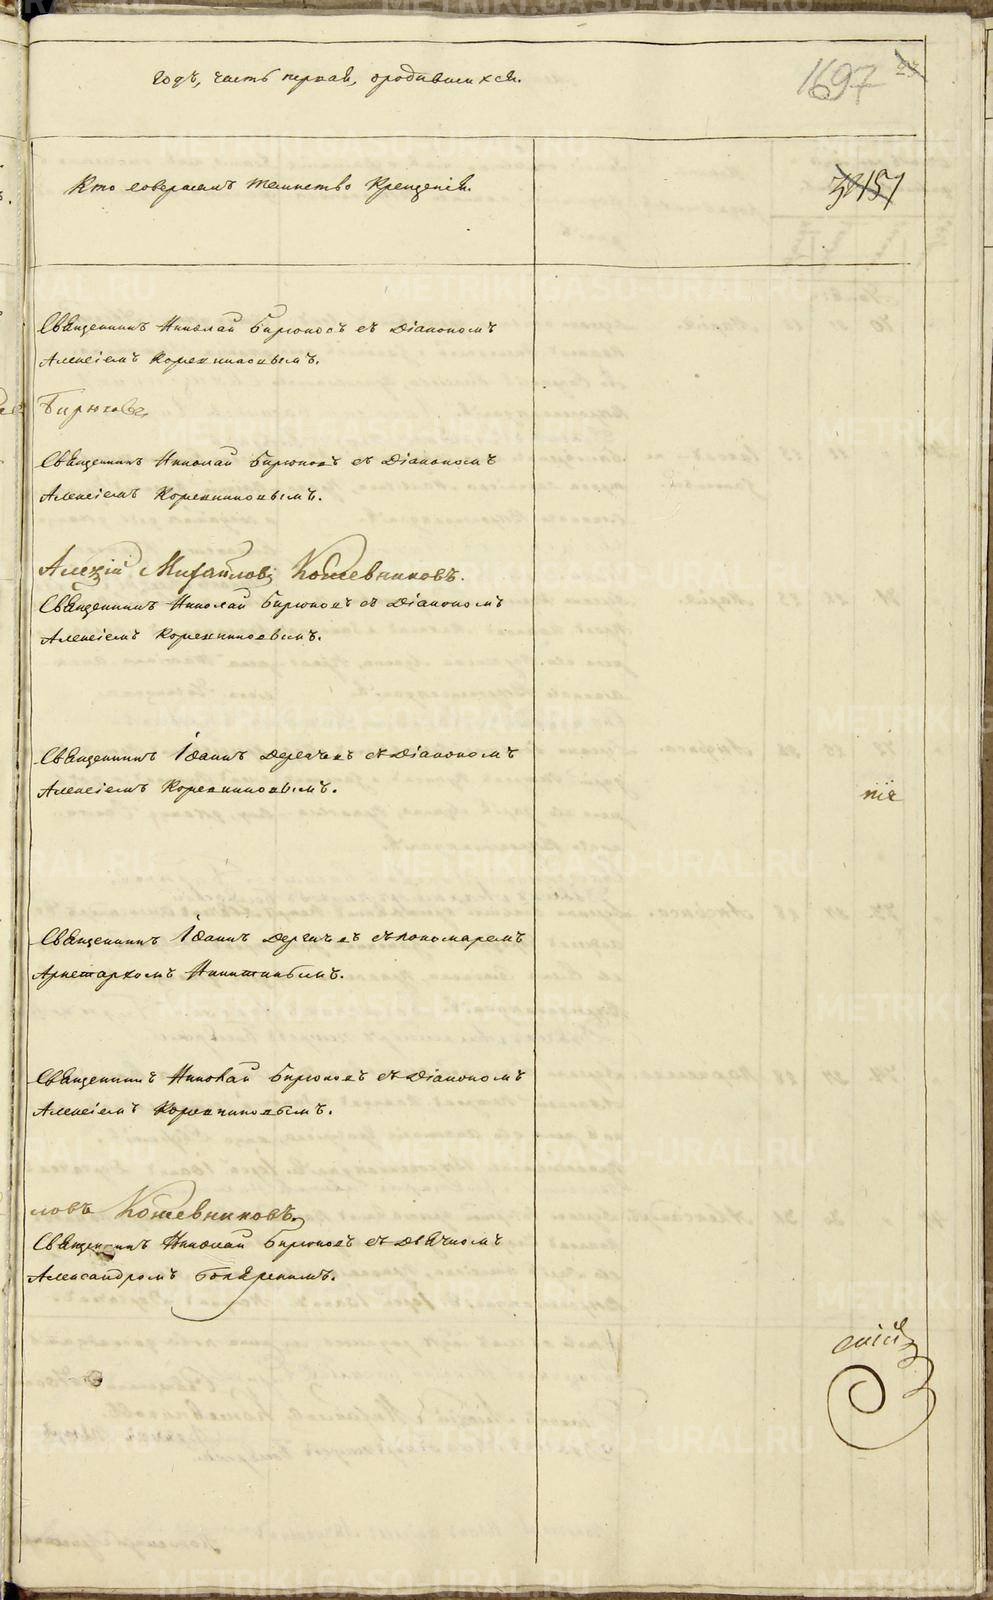 годъ, часть первая, ородившихся.
1697
23
Кто совершалъ таинство крещенія.
Священникъ Николай Бирюковъ съ Діакономъ
Алексіемъ Коровниковымъ.
Бирюкова
Священникъ Николай Бирюковъ съ Діакономъ
Алексіемъ Коровниковымъ.
Алексій Михайловъ Кожевниковъ.
Священникъ Николай Бирюковъ съ Діакономъ
Алексіемъ Коровниковымъ.
Священникъ Іоаннъ Дерячевъ съ Діакономъ
Алексіемъ Коровниковымъ.
Священникъ Іоаннъ съ пономаремъ
Аристархомъ Никитинымъ.
Священникъ Николай Бирюковъ съ Діакономъ
Алексіемъ Коровниковымъ.
ловъ Кожевниковъ
Священникъ Николай Бирюковъ съ Дьячкомъ
Александромъ
METRIKI.GASO-URAL.RU